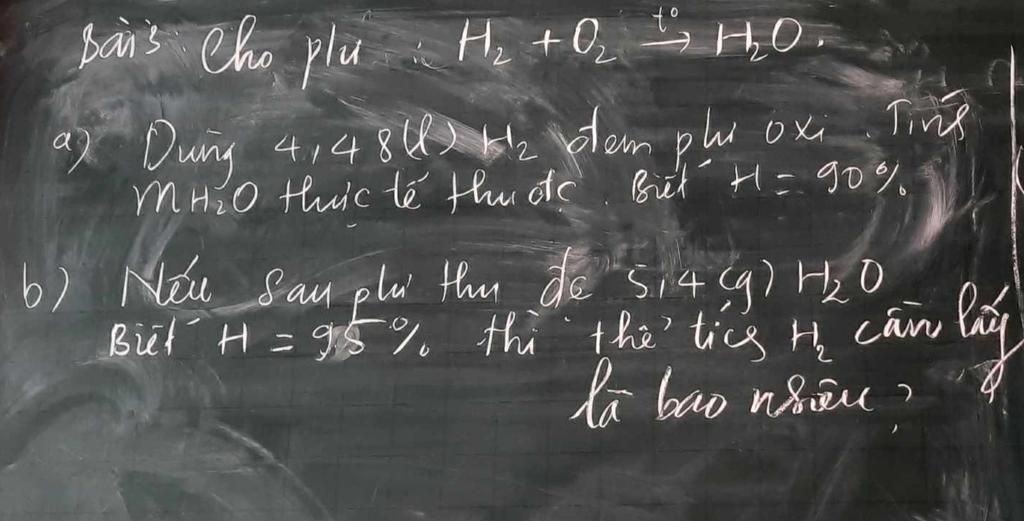 Bài 3: Cho pư : H₂ + O₂ t°→ H₂O.
a) Dùng 4,48(l) H₂ đem pư oxi. Tính
mH₂O thực tế thu đc. Biết H = 90%.
b) Nếu sau pư thu đc 5,4(g) H₂O
Biết H = 95% thì thể tích H₂ cần lấy
là bao nhiêu?